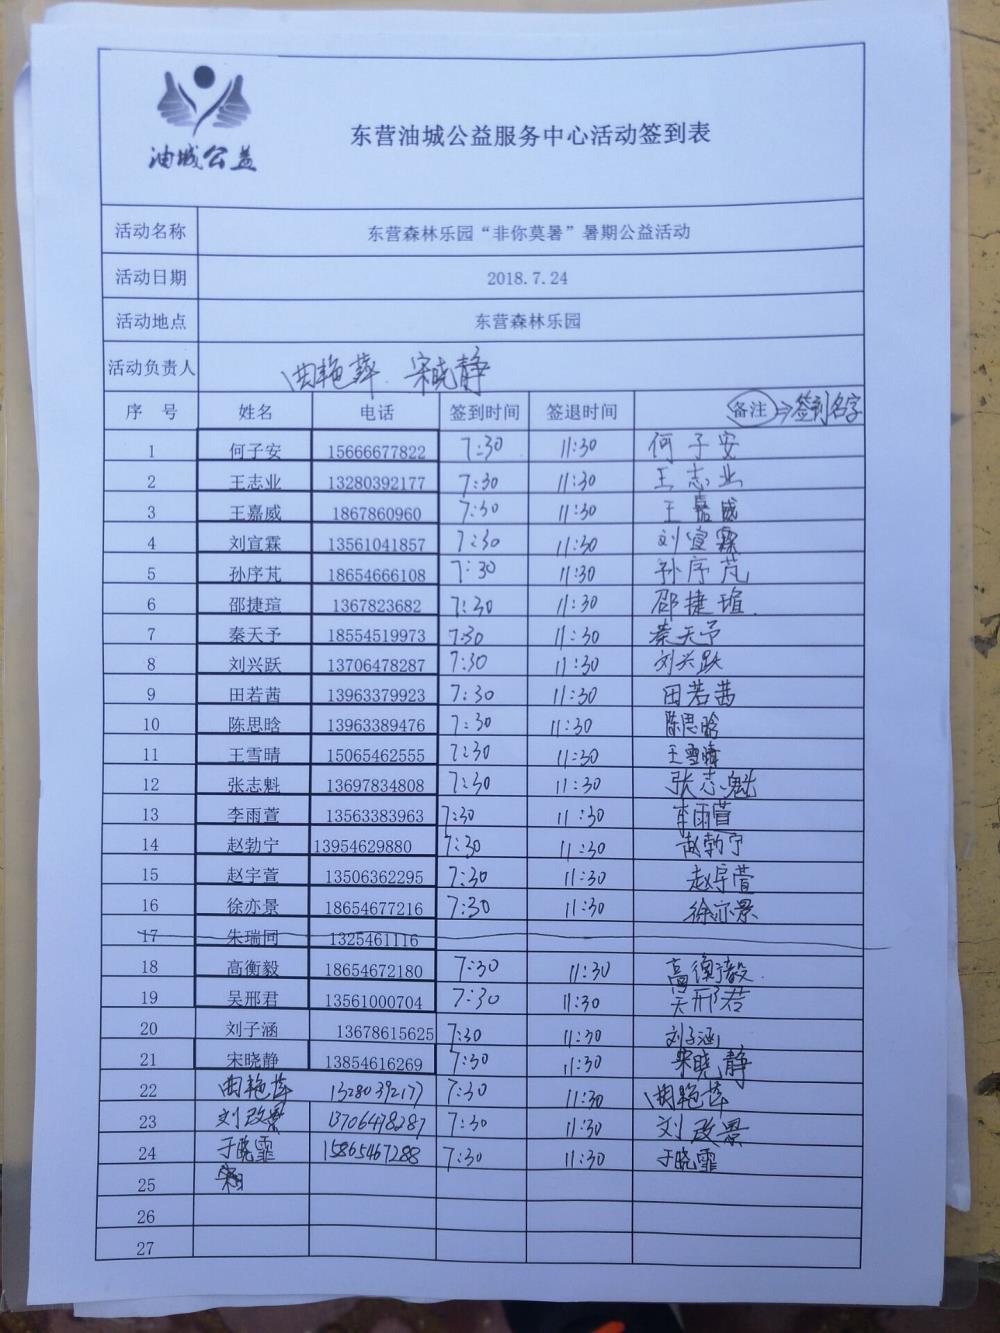 油城公益
东营油城公益服务中心活动签到表
活动名称 东营森林乐园“非你莫暑”暑期公益活动
活动日期 2018.7.24
活动地点 东营森林乐园
活动负责人 曲艳萍 宋晓静
序 号 姓名 电话 签到时间 签退时间 备注⇒签到名字
1 何子安 15666677822 7:30 11:30 何子安
2 王志业 13280392177 7:30 11:30 王志业
3 王嘉威 1867860960 7:30 11:30 王嘉威
4 刘宣霖 13561041857 7:30 11:30 刘宣霖
5 孙序芃 18654666108 7:30 11:30 孙序芃
6 邵捷瑄 1367823682 7:30 11:30 邵捷瑄
7 秦天予 18554519973 7:30 11:30 秦天予
8 刘兴跃 13706478287 7:30 11:30 刘兴跃
9 田若茜 13963379923 7:30 11:30 田若茜
10 陈思晗 13963389476 7:30 11:30 陈思晗
11 王雪晴 15065462555 7:30 11:30 王雪晴
12 张志魁 13697834808 7:30 11:30 张志魁
13 李雨萱 13563383963 7:30 11:30 李雨萱
14 赵勃宁 13954629880 7:30 11:30 赵勃宁
15 赵宇萱 13506362295 7:30 11:30 赵宇萱
16 徐亦景 18654677216 7:30 11:30 徐亦景
17 朱瑞同 1325461116
18 高衡毅 18654672180 7:30 11:30 高衡毅
19 吴邢君 13561000704 7:30 11:30 吴邢君
20 刘子涵 13678615625 7:30 11:30 刘子涵
21 宋晓静 13854616269 7:30 11:30 宋晓静
22 曲艳萍 13280392177 7:30 11:30 曲艳萍
23 刘改景 13706478287 7:30 11:30 刘改景
24 于晓霏 15865467288 7:30 11:30 于晓霏
25
26
27